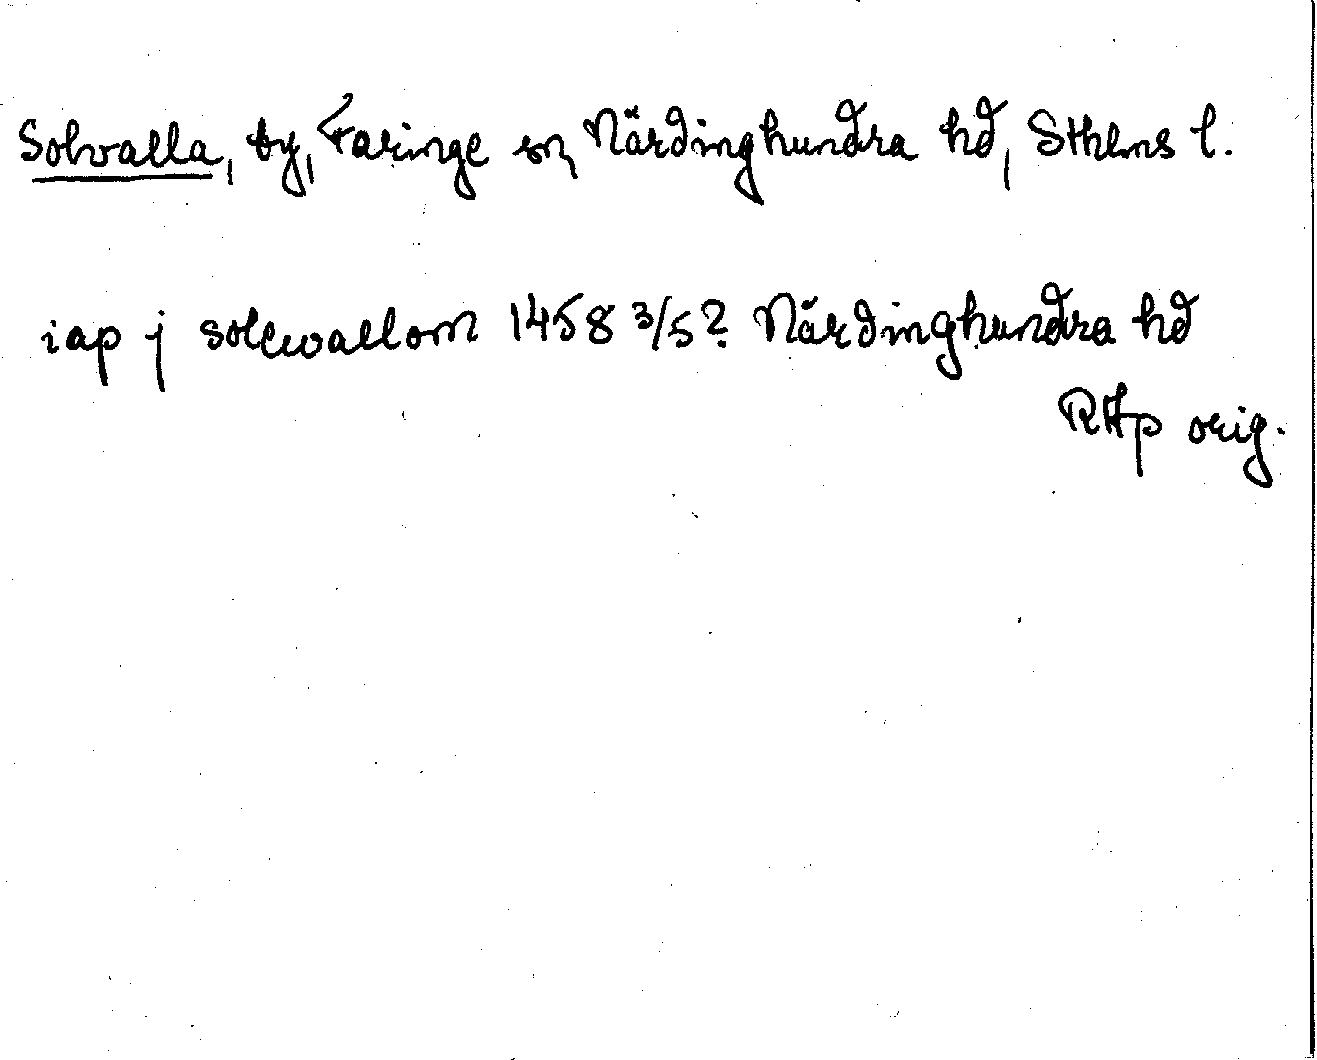 Solvalla, by, Faringe sn, Närdinghundra hd, Sthlms l.
iap j sollwallom 1458 3/5? Närdinghundra hd
RAp orig.